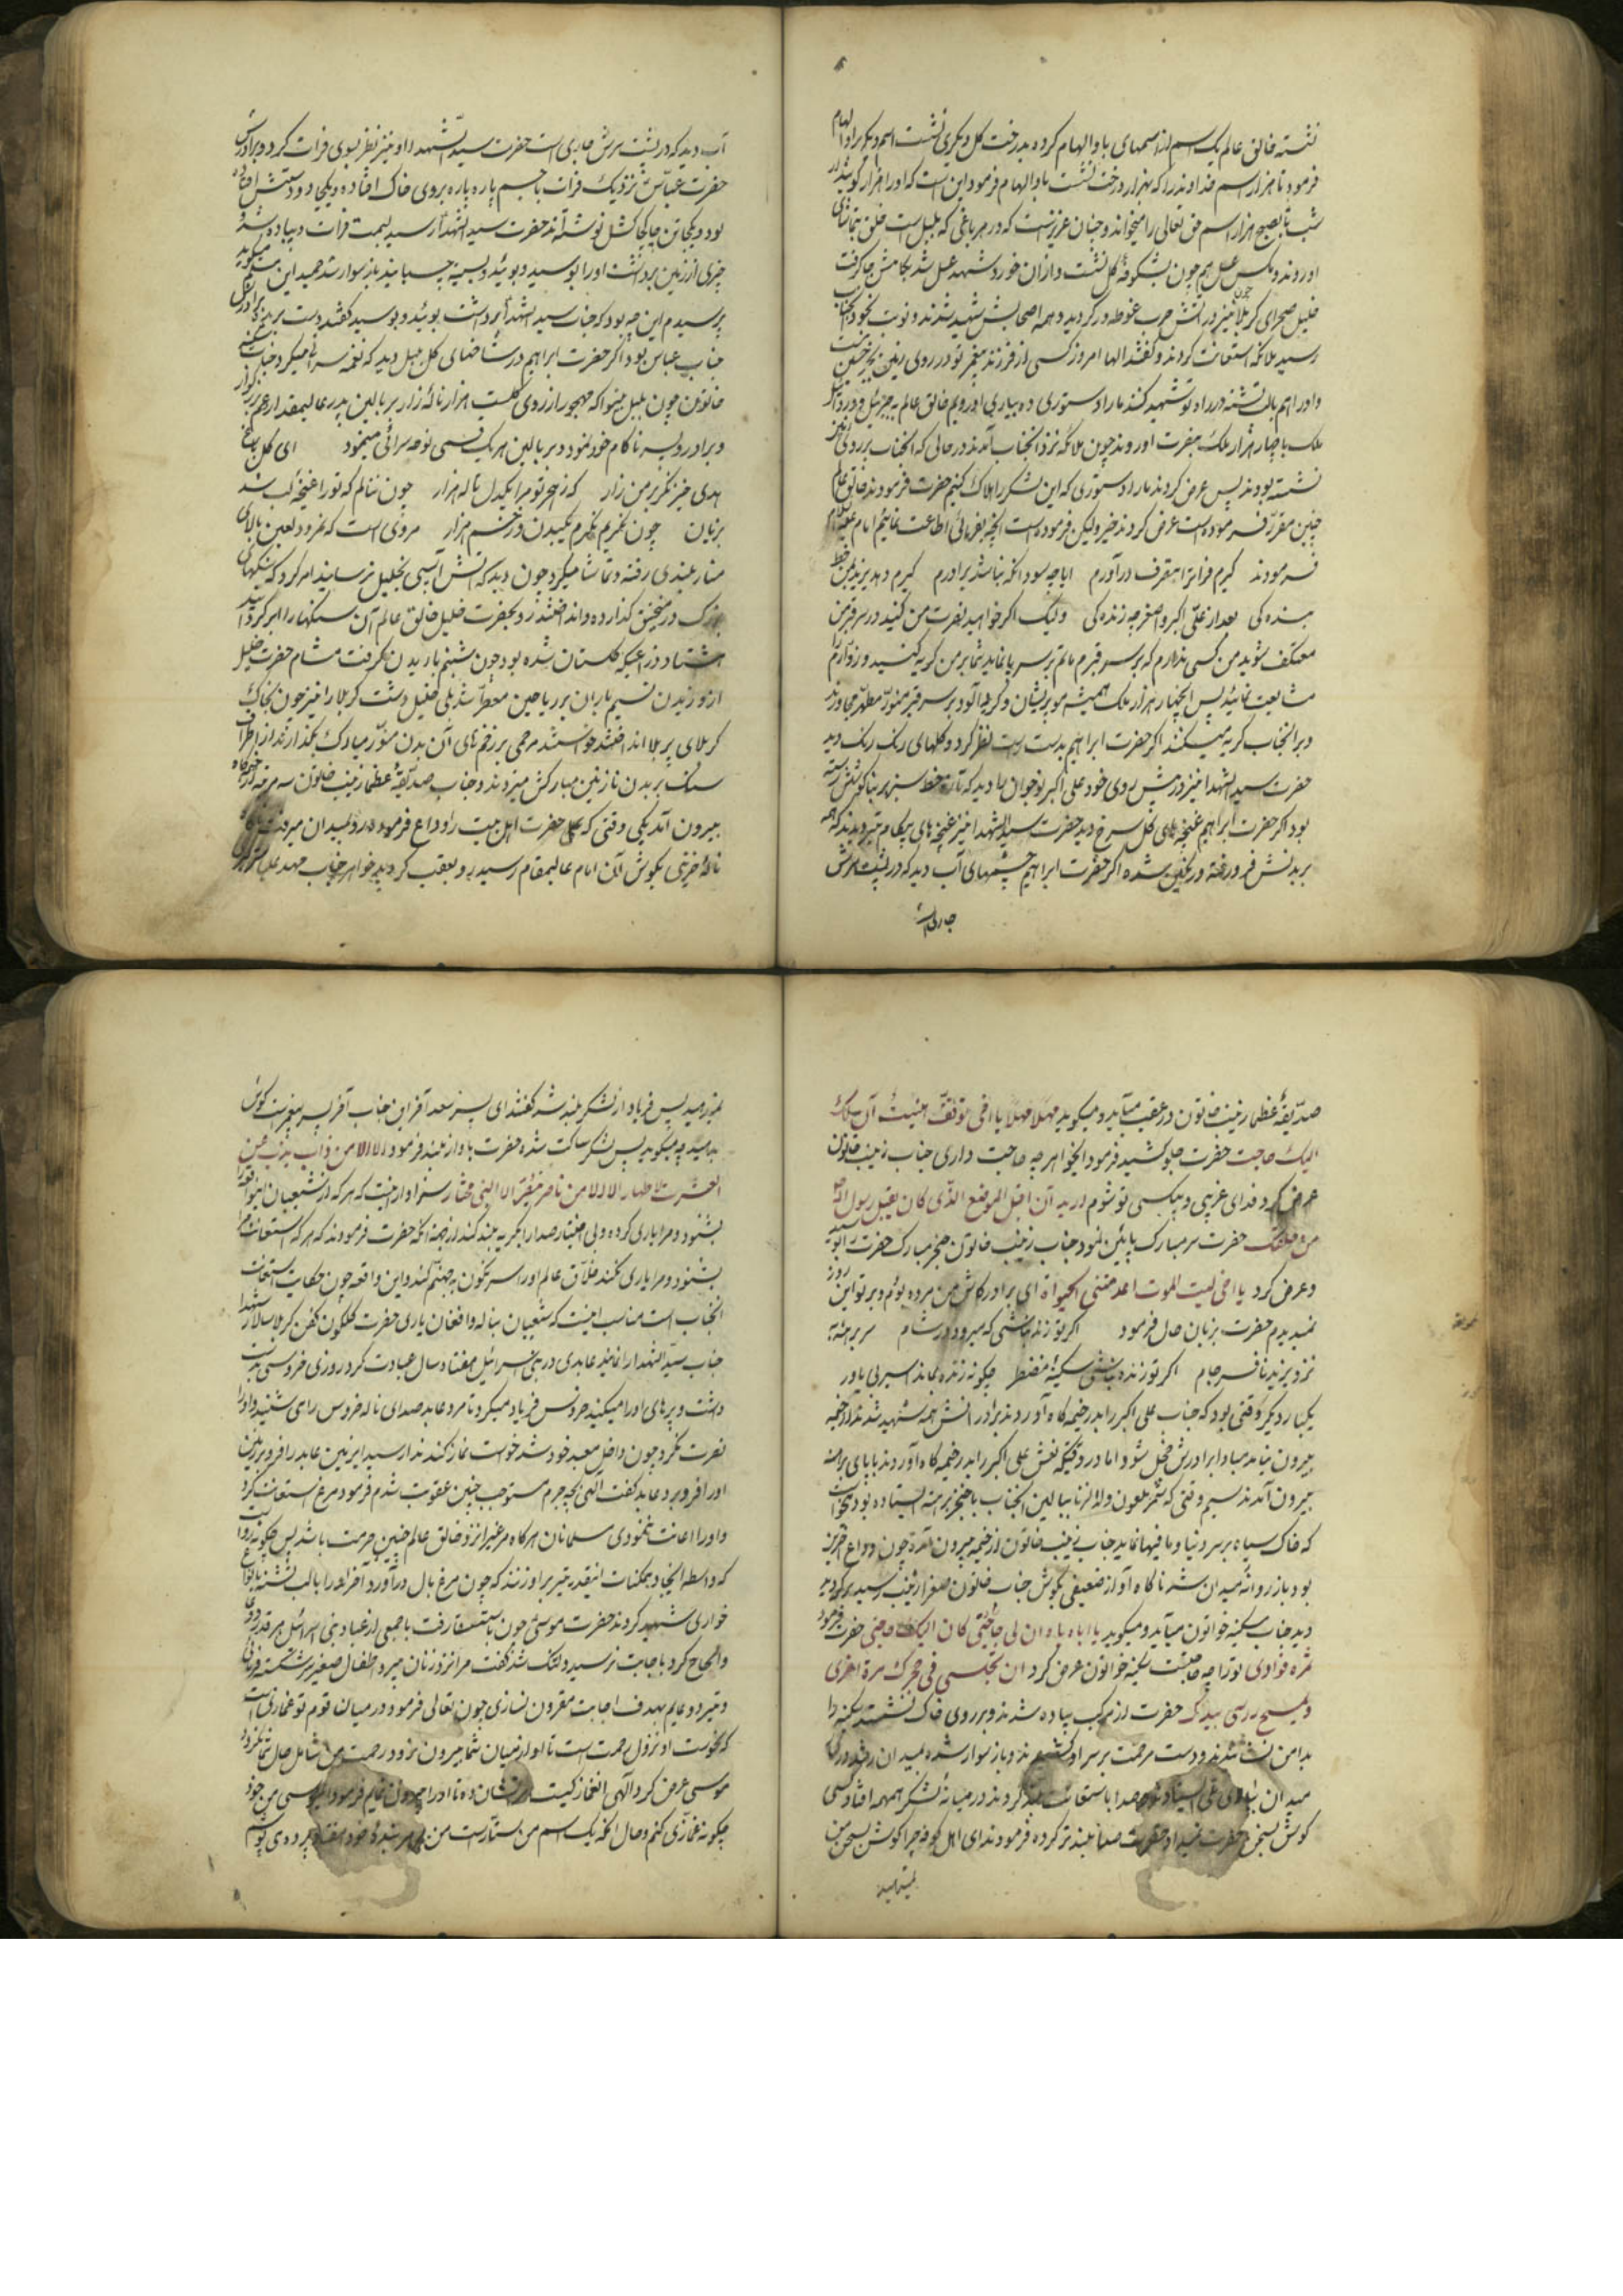 نشسته خالق عالم یک اسم از اسمهای باو الهام کرده بدرخت کل دیکری نشست اسم دیکر باو الهام
فرمود تا هزار اسم خداوند را که بهزار درخت نشست باو الهام فرمود این است که او را هزار کویند از
شب تا بصبح هزار اسم حق تعالی را میخواند و چنان عزیز است که در هر باغی که بلبل است خلق بتماشای
او روند و مکس عسل هم چون بشکوفه کل نشست و از آن خورد شهد عسل شد بکامش جا کرفت
خلیل صحرای کربلا نیز چون در آتش حرب غوطه ور کردید و همه اصحابش شهید شدند و نوبت بخود آنجناب
رسید ملائکه استغاثت کردند و کفتند الها امروز کسی از فرزند پیغمبر تو در روی زمین بجز حسین نیست
و او را هم با لب تشنه در راه تو شهید کنند ما را دستوری ده بیاری او رویم خالق عالم به جبرئیل و دردائیل
ملک با چهار هزار ملک بنصرت او روند چون ملائکه نزد آنجناب آمدند در حالی که آنجناب بر روی
نشسته بودند پس عرض کردند ما را دستوری که این لشکر را هلاک کنیم حضرت فرمودند خالق عالم
چنین مقرر فرموده است عرض کردند خیر ولیکن فرموده است آنچه بفرمائی اطاعت نمائیم امام
فرمودند کیرم فرات را بتصرف در آورم اما چه سود آنکه نباشد برادرم کیرم دهد یزید بمن خط
بنده کی بعد از علی اکبر و اصغر چه زنده کی ولیک اکر خواهید نصرت من کنید در سر قبر من
معتکف شوید من کسی ندارم که بر سر قبرم ماتم بر سر پا نماید شما بر من کریه کنید و زوارم را
مشایعت نمائید پس آنچهار هزار ملک همیشه مو پریشان و کرد آلود بر سر قبر منور مطهر مجاورند
و بر آنجناب کریه میکنند اکر حضرت ابراهیم بدست راست نظر کرد و کلهای رنک رنک دید
حضرت سید الشهدا نیز در پیش روی خود علی اکبر نوجوان را دید که تازه خط سبز بر بناکوشش رسته
بود اکر حضرت ابراهیم غنچه های کل سرخ دید حضرت سید الشهدا نیز غنچه های پیکان تیر دیدند که همه
بر بدنش فرو رفته و رنکین شده اکر حضرت ابراهیم چشمهای آب دید که در پشت سرش
جاریست
آب دید که در پشت سرش جاری است حضرت سید الشهدا او نیز نظر بسوی فرات کرد دید برادرش
حضرت عباس نزدیک فرات با جسم پاره پاره بروی خاک افتاده و یکجا دو دستش افتاده
بود و یکجا تن چاکچاکش نوشته اند حضرت سید الشهدا رسید بسمت فرات و پیاده شد و
چیزی از زمین برداشت او را بوسید و بوئید و بسینه چسبانید باز سوار شد حمید این میکوید
پرسیدم این چه بود که جناب سید الشهدا برداشت بوئید و بوسید کفتند دست بریده برادرش
جناب عباس بود اکر حضرت ابراهیم در شاخهای کل بلبل دید که نغمه سرائی میکرد جناب سکینه
خاتون چون بلبل بینوا که مهجور از روی کلست هزار ناله زار بر بالین پدر عالیمقدار و عم بزرکوار
و برادر و پسر ناکام خود نمود و بر بالین هر یک نفسی نوحه سرائی مینمود ای کل باغ
هدی خیز نکر بر من زار که ز هجر تو مرا یکدل تا له هزار چون ننالم که تو را غنچه لب شد
بزبان چون نکریم نکرم یکبدن و زخم هزار مروی است که نمرود لعین بالای
منار بلندی رفته و تماشا میکرد چون دید که آتش آسیبی بخلیل نرسانید امر کرد که سنکهای
بزرک در منجنیق کذارده و انداختند رو بحضرت خلیل خالق عالم آن سنکها را ابر کردانید
هشتاد ذرع بیک کلستان شده بود چون شبنم باریدن کرفت مشام حضرت خلیل
از وزیدن نسیم باران بر ریاحین معطر شد بلی خلیل دشت کربلا را نیز چون بخاک
کربلای پر بلا انداختند خواستند مرحمی بر زخم های آن بدن منور مبارک بکذارند از اطراف
سنک بر بدن نازنین مبارکش میزدند و جناب صدیقه عظما زینب خاتون سه مرتبه از خیمه کاه
بیرون آمد یکی وقتی که حضرت اهل بیت را وداع فرموده رو بمیدان میرفت
ناله حزینی بکوش آن امام عالیمقام رسید رو بعقب کردید خواهر جناب مهد علیا
صدیقه عظما زینب خاتون در عقب میآید و میکوید مهلا مهلا یا اخی توقف هنیئة ان لی
الیک حاجت حضرت جلو کشید فرمود ایخواهر چه حاجت داری جناب زینب خاتون
عرض کرد فدای غریبی و بیکسی تو شوم ارید ان اقبل الموضع الذی کان یقبل رسول الله
من حلقک حضرت سر مبارک پائین نمود جناب زینب خاتون حنجر مبارک حضرت را بوسید
و عرض کرد یا اخی لیت الموت اعدمنی الحیواة ای برادر کاش من مرده بودم و بر تو این روز
نمیدیدم حضرت بزبان حال فرمود اکر تو زنده نباشی که میرود در شام سر برهنه
نزد یزید نافرجام اکر تو زنده نباشی سکینه مضطر چکونه زنده بماند اسیر بی یاور
یکبار دیکر وقتی بود که جناب علی اکبر را بدر خیمه کاه آوردند برادرانش همه شهید شدند از خیمه
بیرون نیامد مبادا برادرش خجل شود اما در وقتیکه نعش علی اکبر را بدر خیمه کاه آوردند با پای برهنه
بیرون آمدند سیم وقتی که شمر ملعون ولد الزنا ببالین آنجناب با خنجر برهنه ایستاده بود میخواست
که خاک سیاه بر سر دنیا و ما فیها نماید جناب زینب خاتون از خیمه بیرون آمد چون وداع آخرین
بود باز روانه میدان شد ناکاه آواز ضعیفی بکوش جناب خاتون صغرا زینب رسید
دید جناب سکینه خواتون میآید و میکوید یا اباه یا اباه ان لی حاجتی کان الیک حضرت فرمود
ثمره فوادی تو را چه حاجتست سکینه خواتون عرض کرد ان تجلسی فی حجرک مرة اخری
و تمسح راسی بیدک حضرت از مرکب پیاده شدند و بر روی خاک نشستند سکینه را
بدامن نشاندند و دست مرحمت بر سر او کشیدند و باز سوار شده بمیدان رفتند در آن
میدان صدا باستغاثت بلند کردند در میانه لشکر همهمه افتاد کسی
کوش بسخن حضرت نمیداد حضرت صدا بلند تر کرده فرمودند ای اهل کوفه چرا کوش بسخن من
نمیدهید
نمیدهید پس فریاد از لشکر بلند شد کفتند ای پسر سعد آخر این جناب آخر پسر پیغمبر است کوش
بدهید چه میکوید پس لشکر ساکت شده حضرت باواز بلند فرمود الا الا من ذاب یذب عن
العترت الاطهار الا الا من ناصر ینصر الا النبی المختار سزاوار اینست که هر که از شیعیان این واقعه را
بشنود و مرا یاری کرده و بی اختیار صدا را بکریه بلند کند از جهة آنکه حضرت فرمودند که هر که استغاثه مرا
بشنود و مرا یاری نکند خلاق عالم او را سرنکون بجهنم کند و این واقعه چون حکایت استغاثت
آنجناب است مناسب اینست که شیعیان بناله و افغان یاری حضرت کلکون کفن کربلا سالار شهدا
جناب سید الشهدا را نمایند عابدی در بنی اسرائیل هفتاد سال عبادت کرد روزی خروسی بدست
داشت و پرهای او را میکنید خروس فریاد میکرد تا مرد عابد صدای ناله خروس را می شنید و او را
نصرت نکرد چون داخل معبد خود شد خواست نماز کند ندا رسید ای زمین عابد را فرو بر زمین
او را فرو برد عابد کفت الهی بچه جرم مستوجب چنین عقوبت شدم فرمود مرغ استغاثت کرد
و او را اعانت ننمودی مسلمانان هر کاه مرغی را نزد خالق عالم چنین حرمت باشد پس چکونه روا
که واسطه ایجاد ممکنات اینقدر تیر بر او زنند که چون مرغ بال در آورد آخر او را با لب تشنه
خواری شهید کردند حضرت موسی چون باستسقا رفت با جمعی از عباد بنی اسرائیل هر قدر دعا
و الحاح کرد باجابت نرسید دلتنک شد کفت مرا نزد زنان پیر و اطفال صغیر سرشکسته
و تیر دعایم بهدف اجابت مقرون نسازی چون تعالی فرمود در میان قوم تو غمازی است
که نحوست او نزول رحمت است تا او از میان شما بیرون نرود رحمت من شامل حال شما نکردد
موسی عرض کرد الهی آن غماز کیست نشان ده تا او را بیرون نمایم فرمود ای موسی من خود
چکونه غمازی کنم و حال آنکه یک اسم من ستار است من